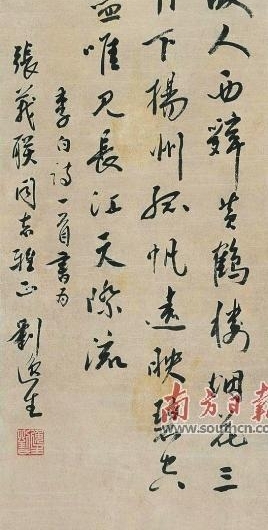 故人西辭黃鶴樓烟花三
月下揚州孤帆遠映碧空
盡唯見長江天際流
李白詩一首書為
張義聯同志雅正 劉逸生
南方日報
www.southcn.com